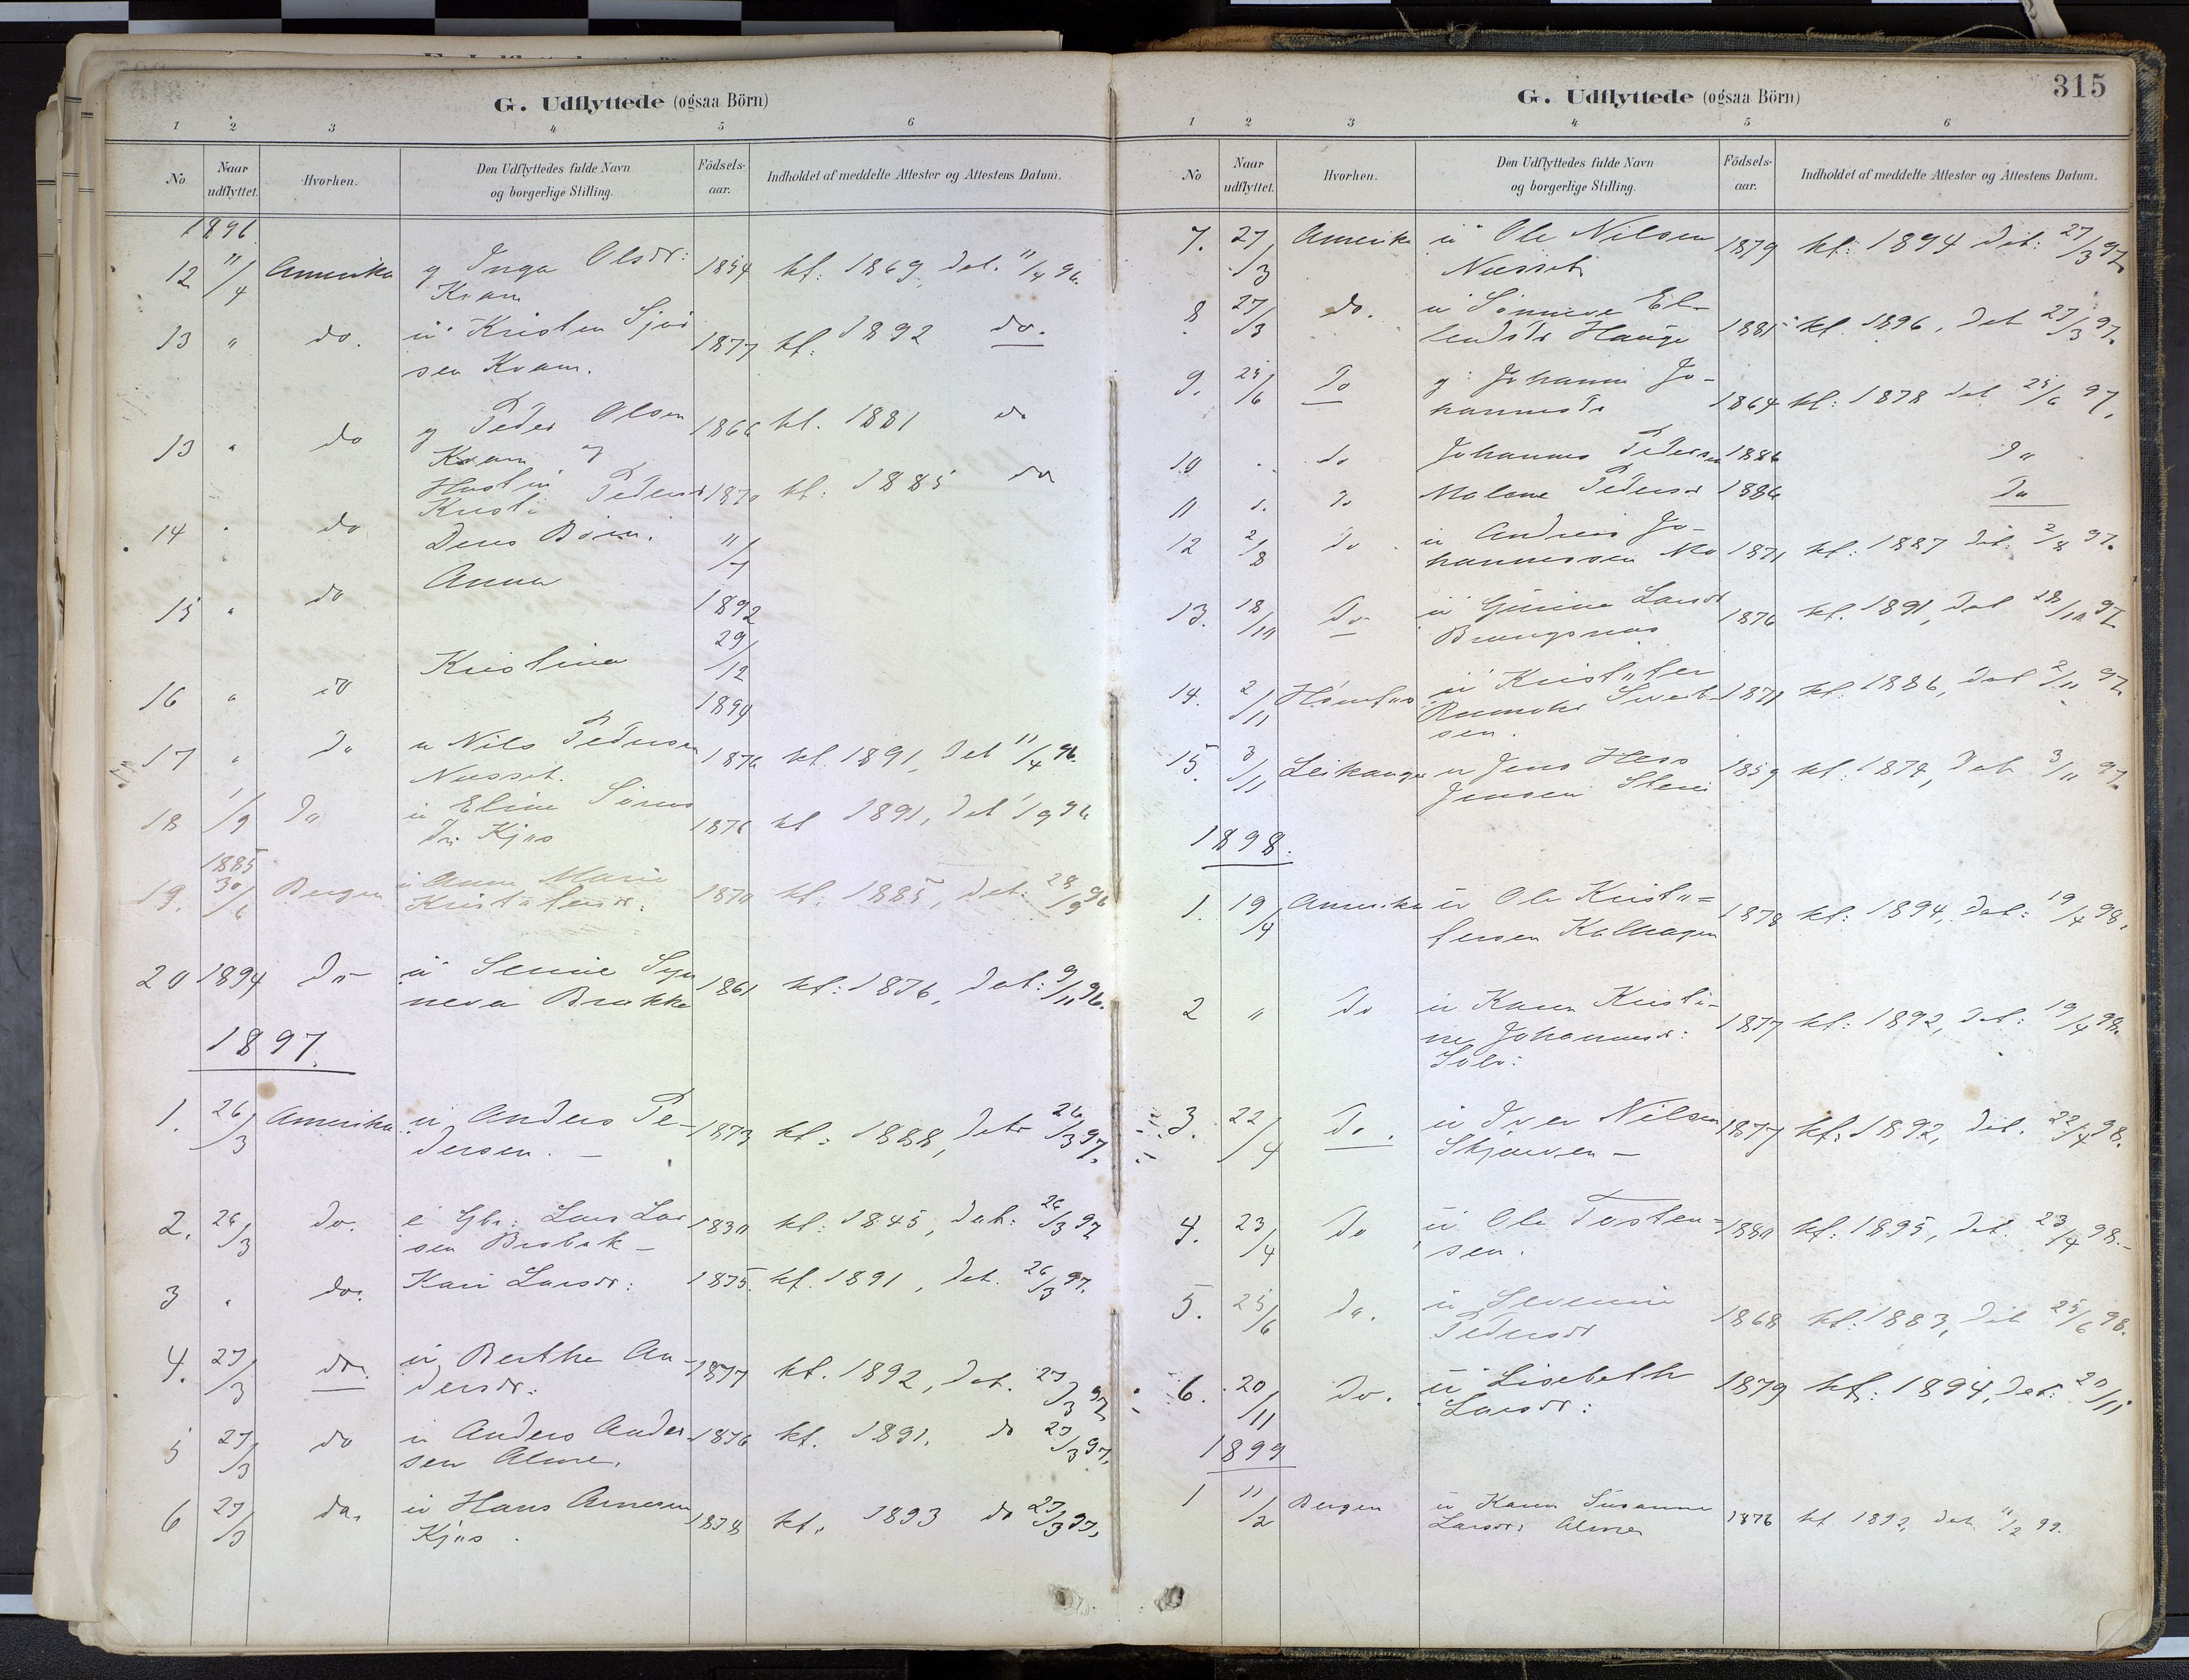 G. Udflyttede (ogsaa Börn)
1 2 3 4 5 6
No
Naar udflyttet.
Hvorhen.
Den Udflyttedes fulde Navn og borgerlige Stilling.
Födsels-aar.
Indholdet af meddelte Attester og Attestens Datum.
1896
12 11/4 Amerika g Inga Olsdr: 1854 kf: 1869, dat. 11/4 96.
Kvam
13 " do. u Kristen Sjur 1877 kf: 1892 do.
sen Kvam.
13 " do g Peder Olsen 1866 kf. 1881 do
Kvam og
Hustru Pedersd 1870 kf: 1885 do
Kristi
14 " do Deres Börn:
15 " do Anna 11/1 1892
16 " do Kristina 29/12 1894
17 " do u Nils Pedersen 1876 kf. 1891, dat 11/4 96.
Nesset.
18 1/9 do u Eline Sörens 1876 kf 1891, dat 1/9 96
dr. Kjøs
19. 1885 30/6 Bergen u Anna Marie 1870 kf: 1885, dat: 28/9 96
Kristofersdr:
20 1894 do u Synneva Brække 1861 kf: 1876, dat: 9/11 96.
1897.
1. 26/3 Amerika u Anders Pe- 1873 kf: 1888, dat. 26/3 97.
dersen. –
2. 26/3 do. e Gbr: Lars Lar 1830 kf: 1845, dat: 26/3 97
sen –
3 " do. Kari Larsdr: 1875. kf. 1891, dat. 26/3 97.
4. 27/3 do. u Berthe An- 1877 kf. 1892, dat. 27/3 97
dersdr:
5 27/3 do u Anders Ander- 1876 kf. 1891. do 27/3 97.
sen Alme.
6 27/3 do. u Hans Arnesen 1878 kf. 1893 do 27/3 97.
Kjøs.
G. Udflyttede (ogsaa Börn)
315
1 2 3 4 5 6
No
Naar udflyttet.
Hvorhen.
Den Udflyttedes fulde Navn og borgerlige Stilling.
Födsels-aar.
Indholdet af meddelte Attester og Attestens Datum.
7. 27/3 Amerika u Ole Nilsen 1879 kf: 1894 dat: 27/3 97.
Nesset
8 27/3 do. u Sönneve El- 1881 kf. 1896, dat 27/3 97.
lendsdr Hauge
9. 25/6 do g Johanna Jo- 1864 kf: 1878 dat 25/6 97.
hannesdr
10 " do Johannes Pedersen 1886 do
11 " do Malene Pedersd 1886 do
12 2/8 do u Andreas Jo- 1871 kf: 1887 dat: 2/8 97.
hannessen Mo
13. 18/10 do u Gurine Larsdr 1876 kf. 1891, dat 18/10 97
14. 2/11 u Kristofer 1871 kf. 1886, dat 2/11 97
Rumohr
sen.
15. 3/11 Leikanger u Jens Hess 1859 kf: 1874, dat 3/11 97.
Jensen
1898.
1. 19/4 Amerika u Ole Kristo= 1878 kf: 1894, dat: 19/4 98.
fersen Kalhagen
2 " do u Karen Kristi- 1877 kf: 1892, dat: 19/4 98.
ne Johannesdr:
3. 22/4 do. u Iver Nilsen 1877 kf: 1892, dat. 22/4 98.
Skjærven –
4. 23/4 do u Ole Tosten= 1880 kf: 1895, dat. 23/4 98.–
sen.
5. 25/6 do. u Severine 1868 kf: 1883, dat 25/6 98.
Pedersdr
6. 20/11 do. u Lisebeth 1879 kf: 1894, dat: 20/11
Larsdr:
1899
1 11/2 Bergen u Karen Susanne 1876 kf 1892, dat. 11/2 99.
Larsdr: Alme